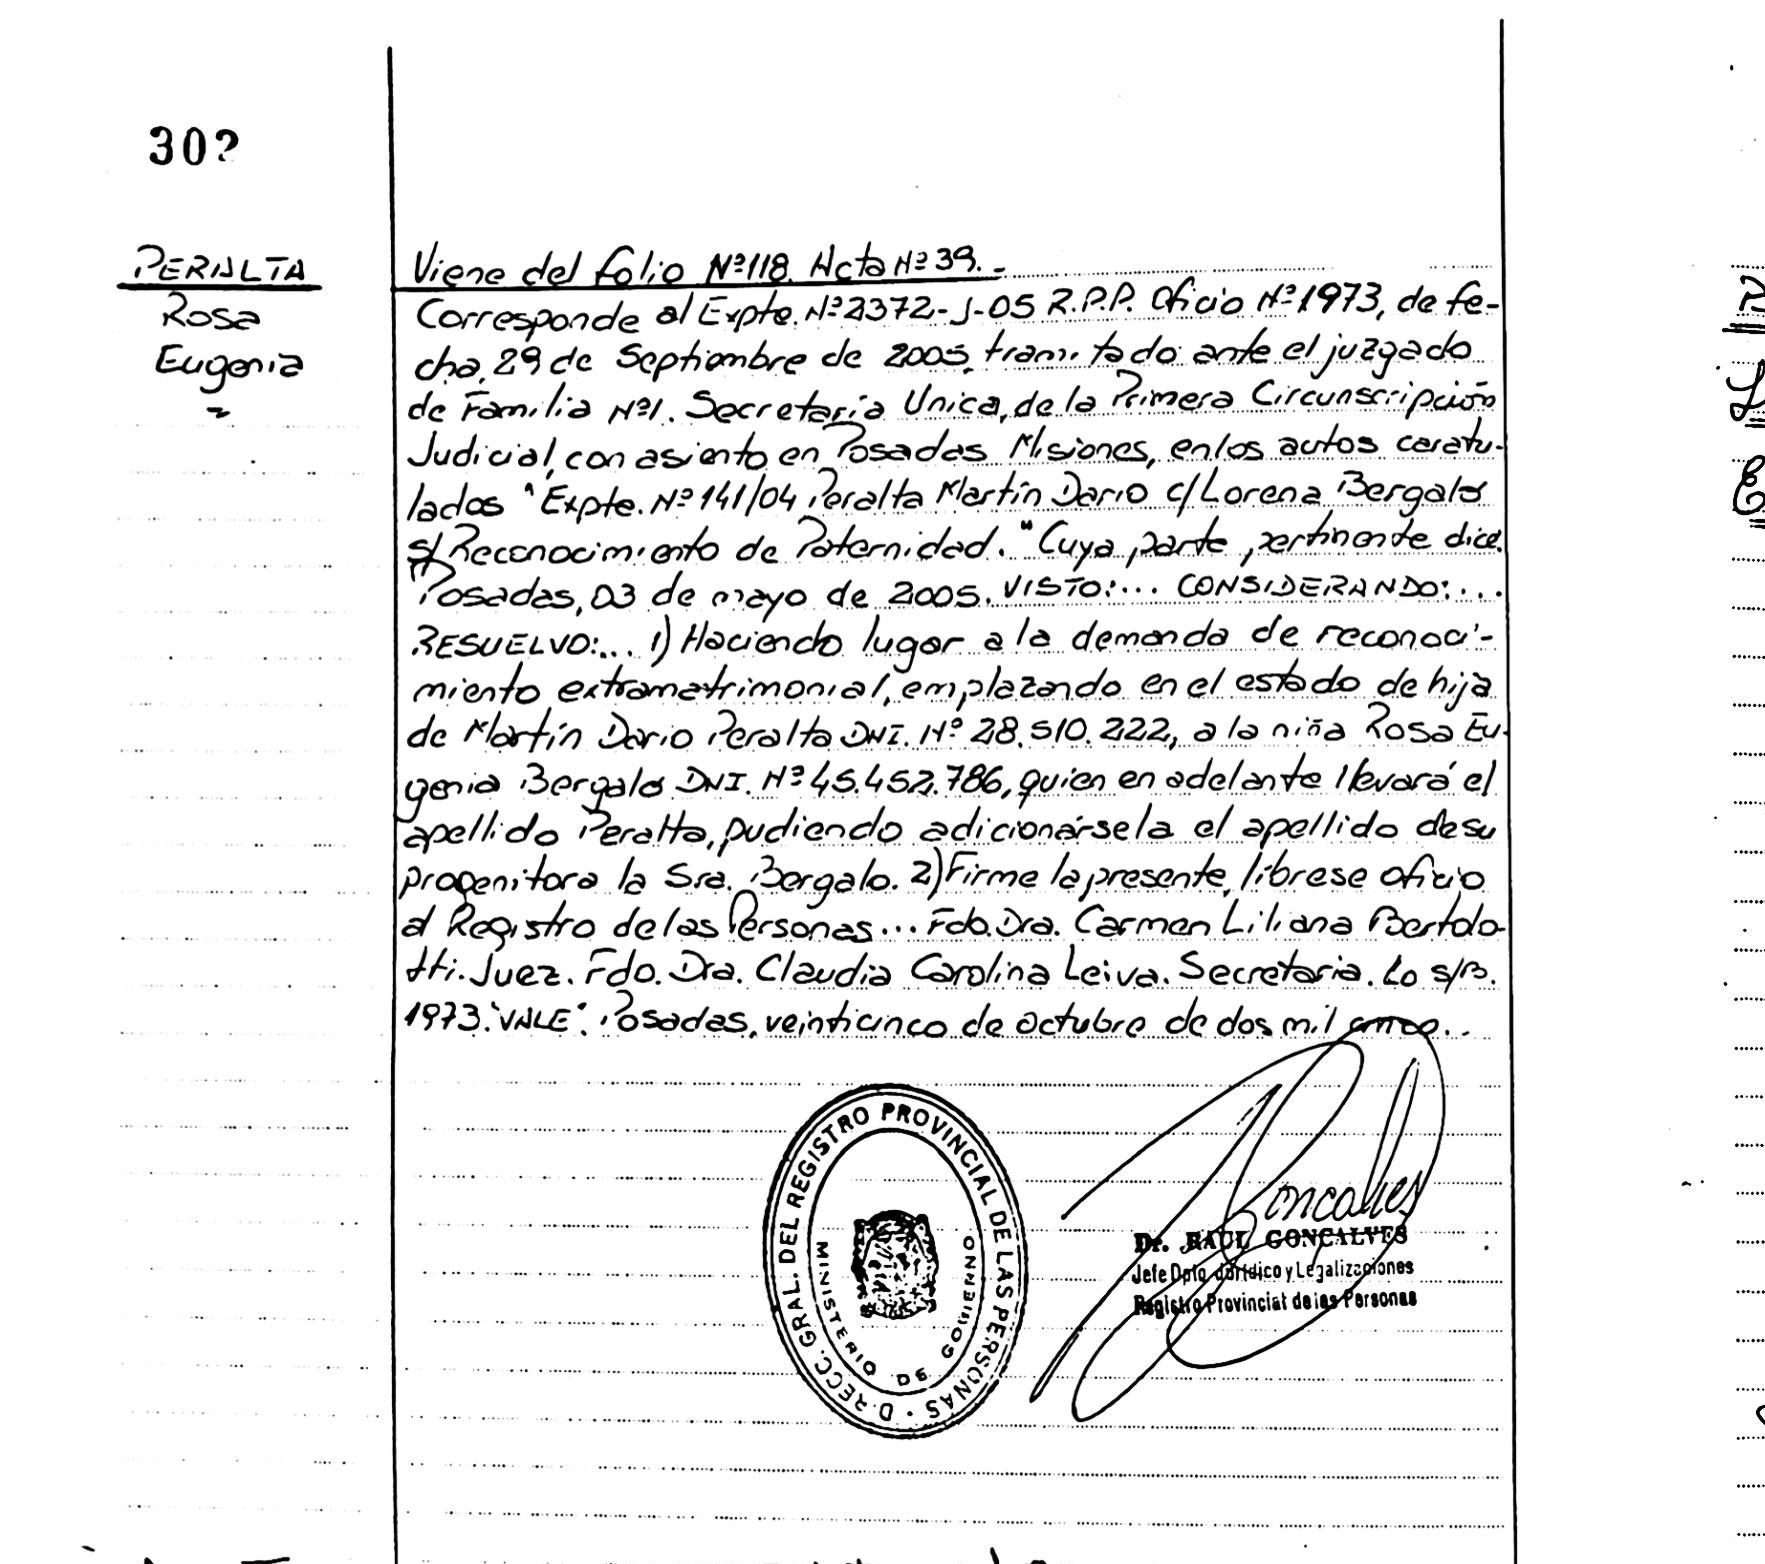 302
PERALTA
Rosa
Eugenia
Viene del folio Nº118. Acta Nº39.-
Corresponde al Expte. Nº2372-J-05 R.P.P. Oficio Nº1973, de fe-
cha, 29 de Septiembre de 2005, tramitado ante el juzgado
de Familia Nº1. Secretaría Unica, de la Primera Circunscripción
Judicial, con asiento en Posadas Misiones, en los autos caratu-
lados "Expte. Nº141/04 Peralta Martín Dario c/ Lorena Bergalo
s/ Reconocimiento de Paternidad." Cuya parte pertinente dice.
Posadas, 03 de mayo de 2005. VISTO:... CONSIDERANDO:...
RESUELVO:... 1) Haciendo lugar a la demanda de reconoci-
miento extramatrimonial, emplazando en el estado de hija
de Martín Dario Peralta DNI. Nº 28.510.222, a la niña Rosa Eu-
genia Bergalo DNI. Nº45.452.786, quien en adelante llevará el
apellido Peralta, pudiendo adicionársela el apellido de su
progenitora la Sra. Bergalo. 2) Firme la presente, líbrese oficio
al Registro de las Personas... Fdo. Dra. Carmen Liliana Bertolo-
tti. Juez. Fdo. Dra. Claudia Carolina Leiva. Secretaria. Lo s/B.
1973. "VALE". Posadas, veinticinco de octubre de dos mil cinco..
DIRECC. GRAL. DEL REGISTRO PROVINCIAL DE LAS PERSONAS
MINISTERIO DE GOBIERNO
Goncalves
Dr. RAUL GONCALVES
Jefe Dpto. Jurídico y Legalizaciones
Registro Provincial de las Personas